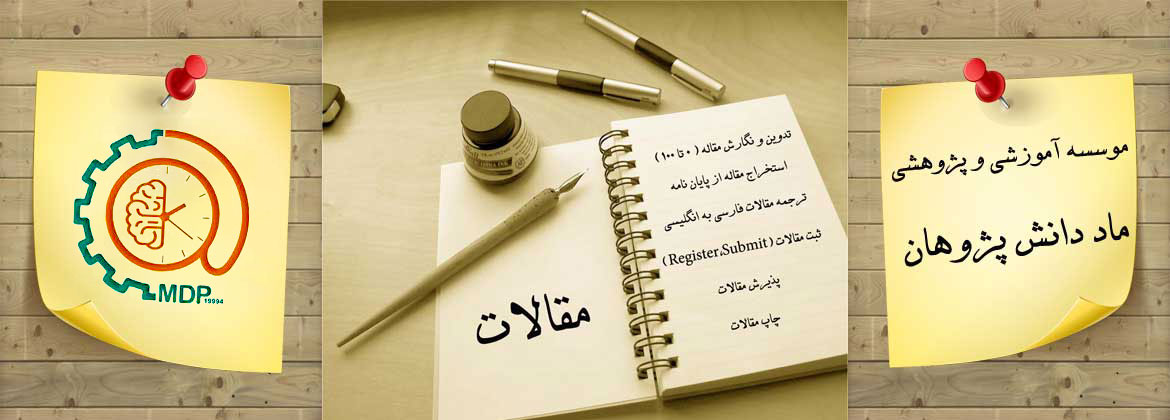 موسسه آموزشی و پژوهشی
ماد دانش پژوهان
تدوین و نگارش مقاله ( ۰ تا ۱۰۰ )
استخراج مقاله از پایان نامه
ترجمه مقالات فارسی به انگلیسی
ثبت مقالات (Register،Submit)
پذیرش مقالات
چاپ مقالات
مقالات
MDP 19994